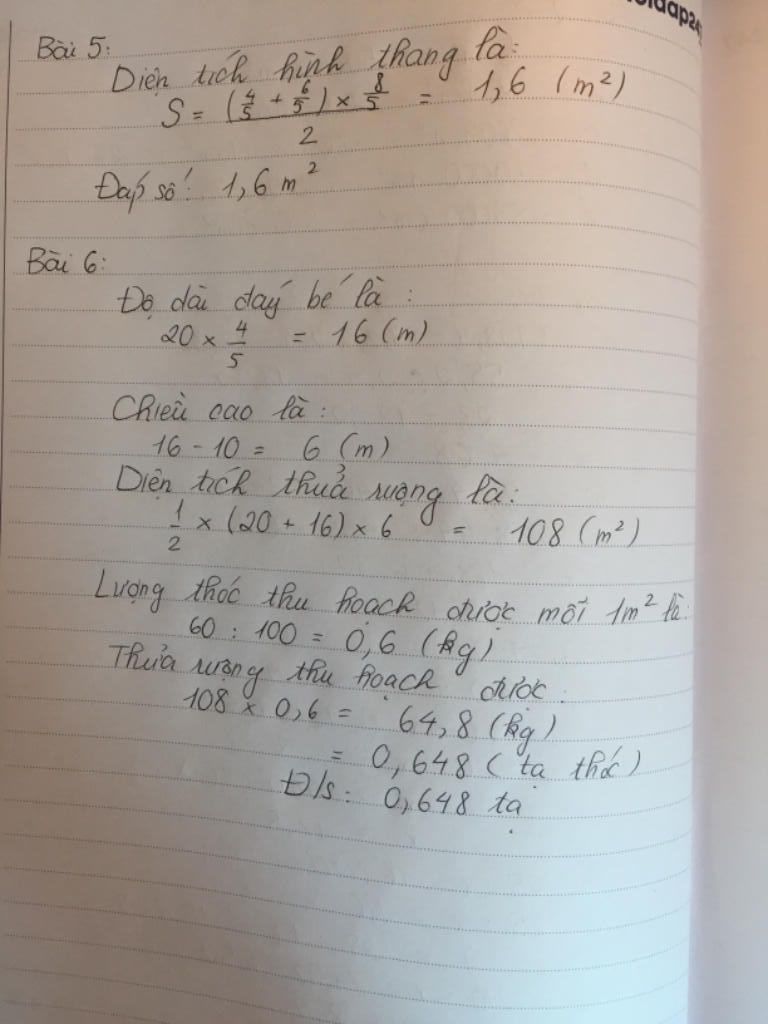 Bài 5:
Diện tích hình thang là:
S = (4/5 + 6/5) × 8/5 / 2 = 1,6 (m²)
Đáp số: 1,6 m²
Bài 6:
Độ dài đáy bé là:
20 × 4/5 = 16 (m)
Chiều cao là:
16 - 10 = 6 (m)
Diện tích thửa ruộng là:
1/2 × (20 + 16) × 6 = 108 (m²)
Lượng thóc thu hoạch được mỗi 1m² là:
60 : 100 = 0,6 (kg)
Thửa ruộng thu hoạch được:
108 × 0,6 = 64,8 (kg)
= 0,648 (tạ thóc)
Đ/s: 0,648 tạ